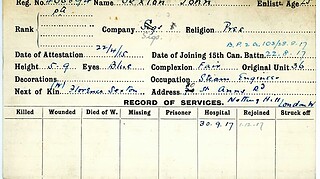 Reg. No. Name Sexton John Enlist. Age 23
Rank Company Religion Pres
B.P.2.0. 103/28.8.17
Date of Attestation 22/4/15 Date of Joining 15th Can. Battn. 22.8.17
Height 5-9 Eyes Blue Complexion Fair Original Unit 36
Decorations Occupation Steam Engineer
Next of Kin Florence Sexton Address St Anns Rd
RECORD OF SERVICES. Notting Hill London W
Killed Wounded Died of W. Missing Prisoner Hospital Rejoined Struck off
30.9.17